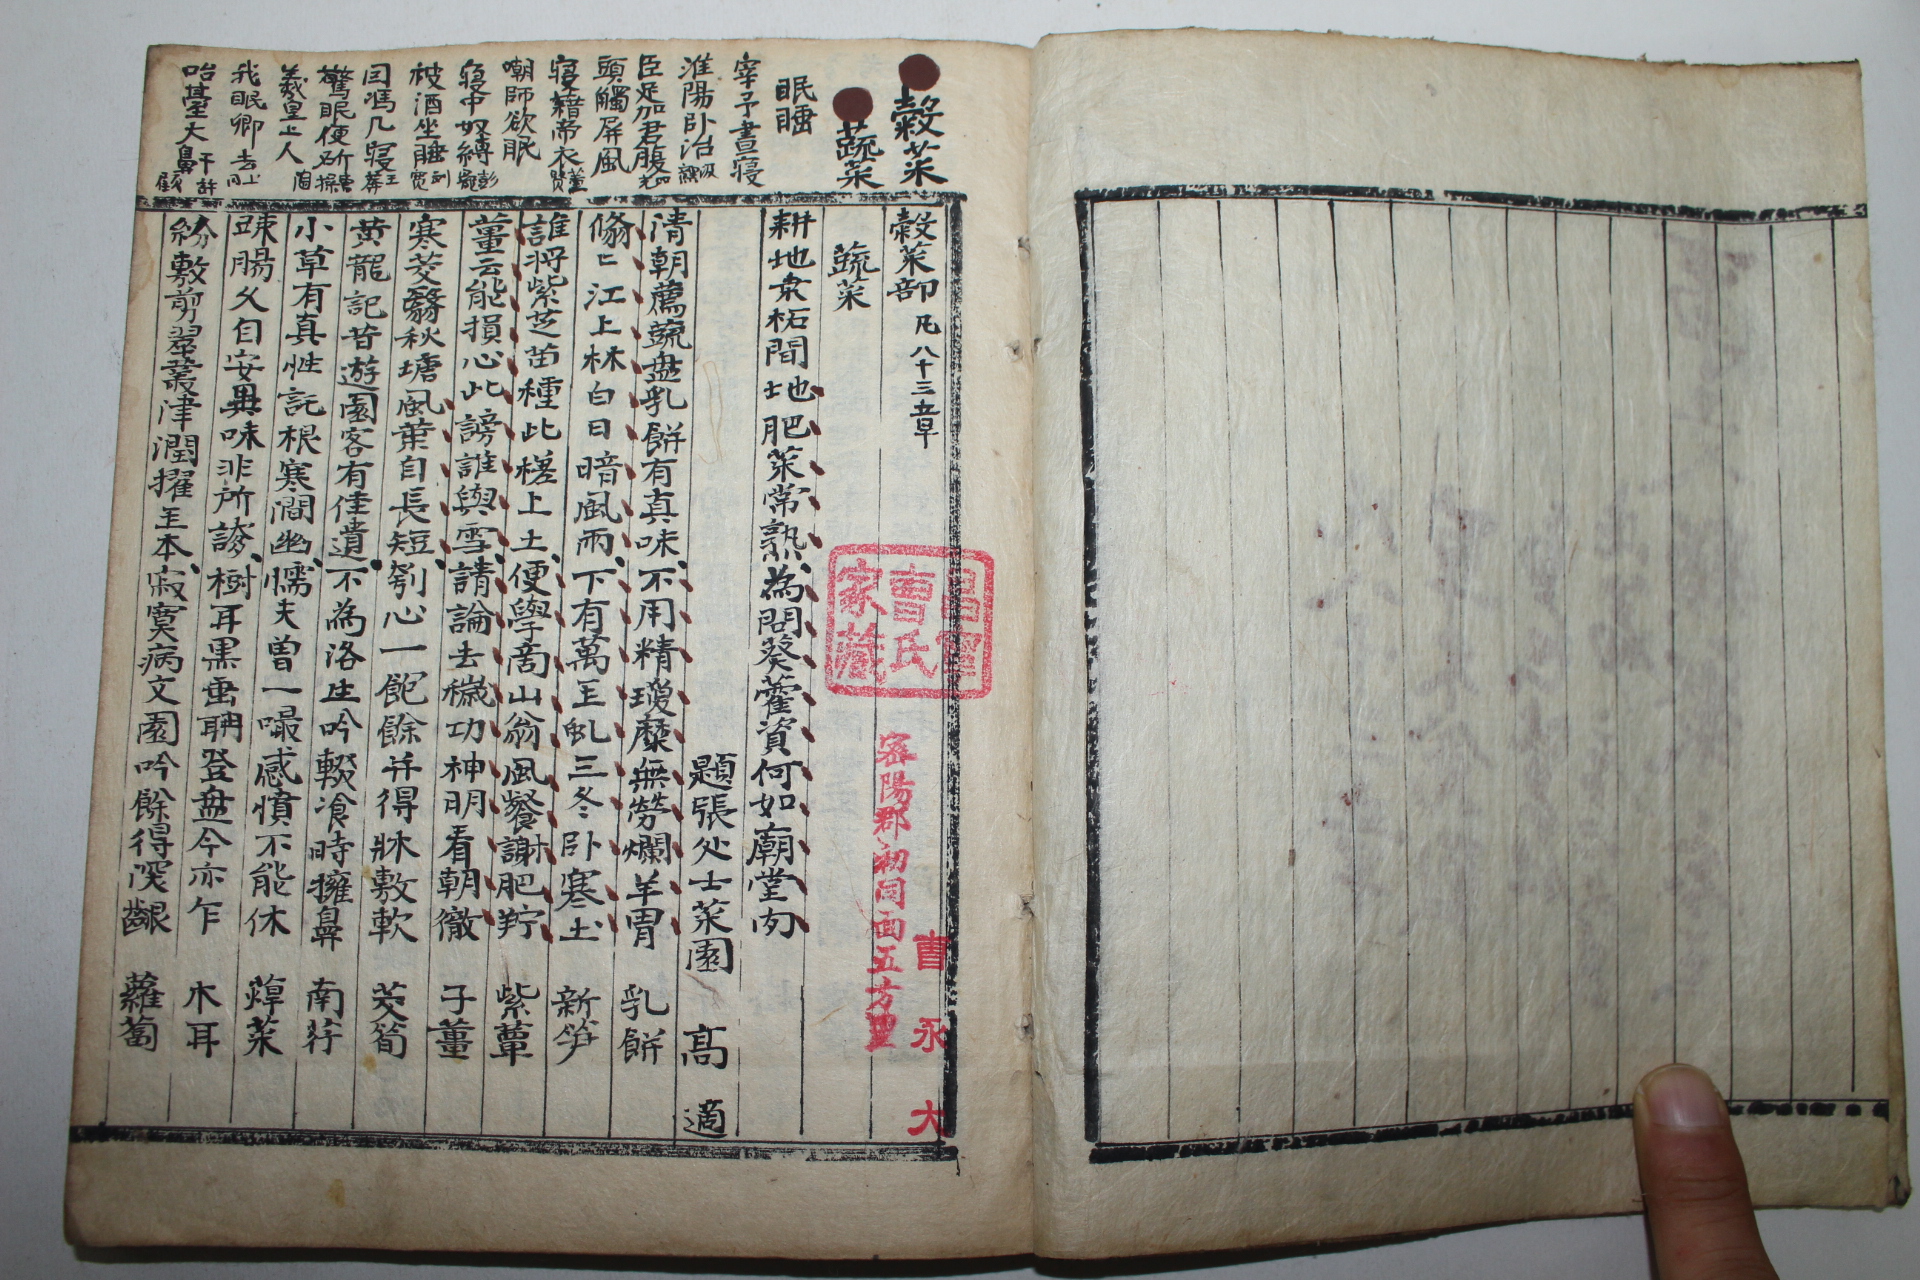 穀菜
蔬菜
眠睡
宰予晝寢
淮陽卧治
臣足加君腹
頭觸屏風
寢藉帝衣
嘲師欲眠
寢中奴縛
被酒坐睡
因馮几寢
驚眠便斫
羲皇上人
我眠卿去
咍臺大鼻
穀菜部 凡八十三章
蔬菜
耕地桒柘間地肥菜常熟為問葵藿資何如廟堂肉
題張処士菜園 高適
清朝薦蔬盘乳餅有真味不用精瓊糜無勞爛羊胃 乳餅
翛〻江上林白日暗風雨下有萬玉虬三冬卧寒土 新笋
誰将紫芝苗種此槎上土便學商山翁風餐謝肥羜 紫蕈
薑云能損心此謗誰與雪請論去穢功神明看朝徹 子薑
寒茭翳秋塘風葉自長短刳心一飽餘并得牀敷軟 茭筍
黄龍記昔遊園客有佳遺不為洛生吟輟飡時擁鼻 南荇
小草有真性託根寒澗幽懦夫曽一嘬感憤不能休 蔊菜
踈腸久自安異味非所誇樹耳黒垂聃登盘今亦乍 木耳
紛敷剪翠叢津潤擢玉本寂寞病文園吟餘得深齦 蘿蔔
昌寧
曺氏
家藏
密陽郡初同面五方里
曺永大